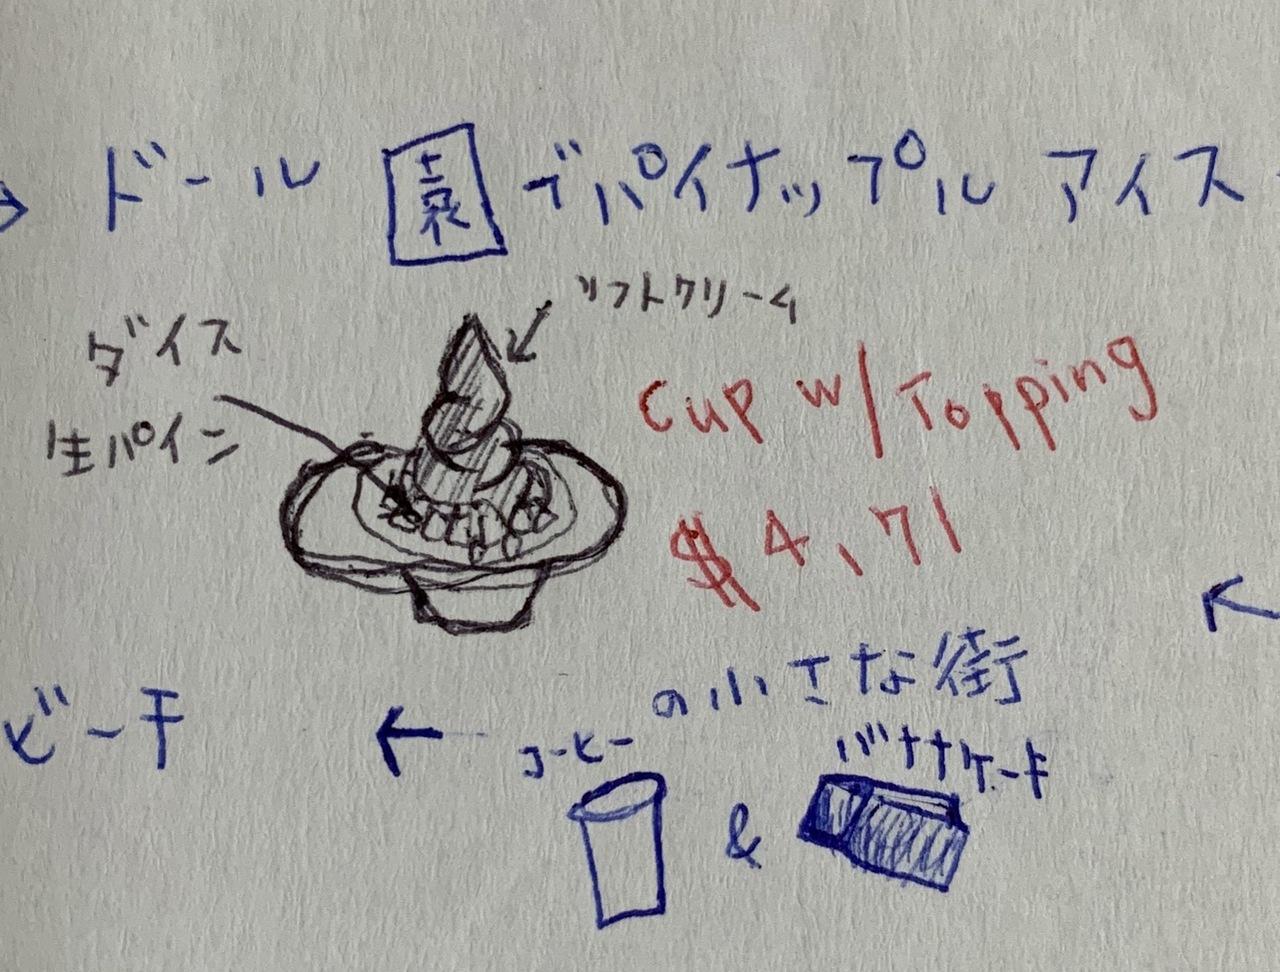 → ドール園デパイナップル アイス
ソフトクリーム
ダイス
生パイン
Cup w/Topping
$4,71
←
の小さな街
ビーチ ←
コーヒー
バナナケーキ
&